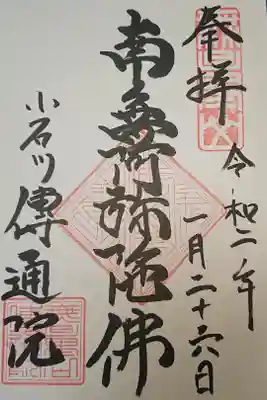 奉拝
令和二年
一月二十六日
南無阿弥陀佛
小石川傳通院